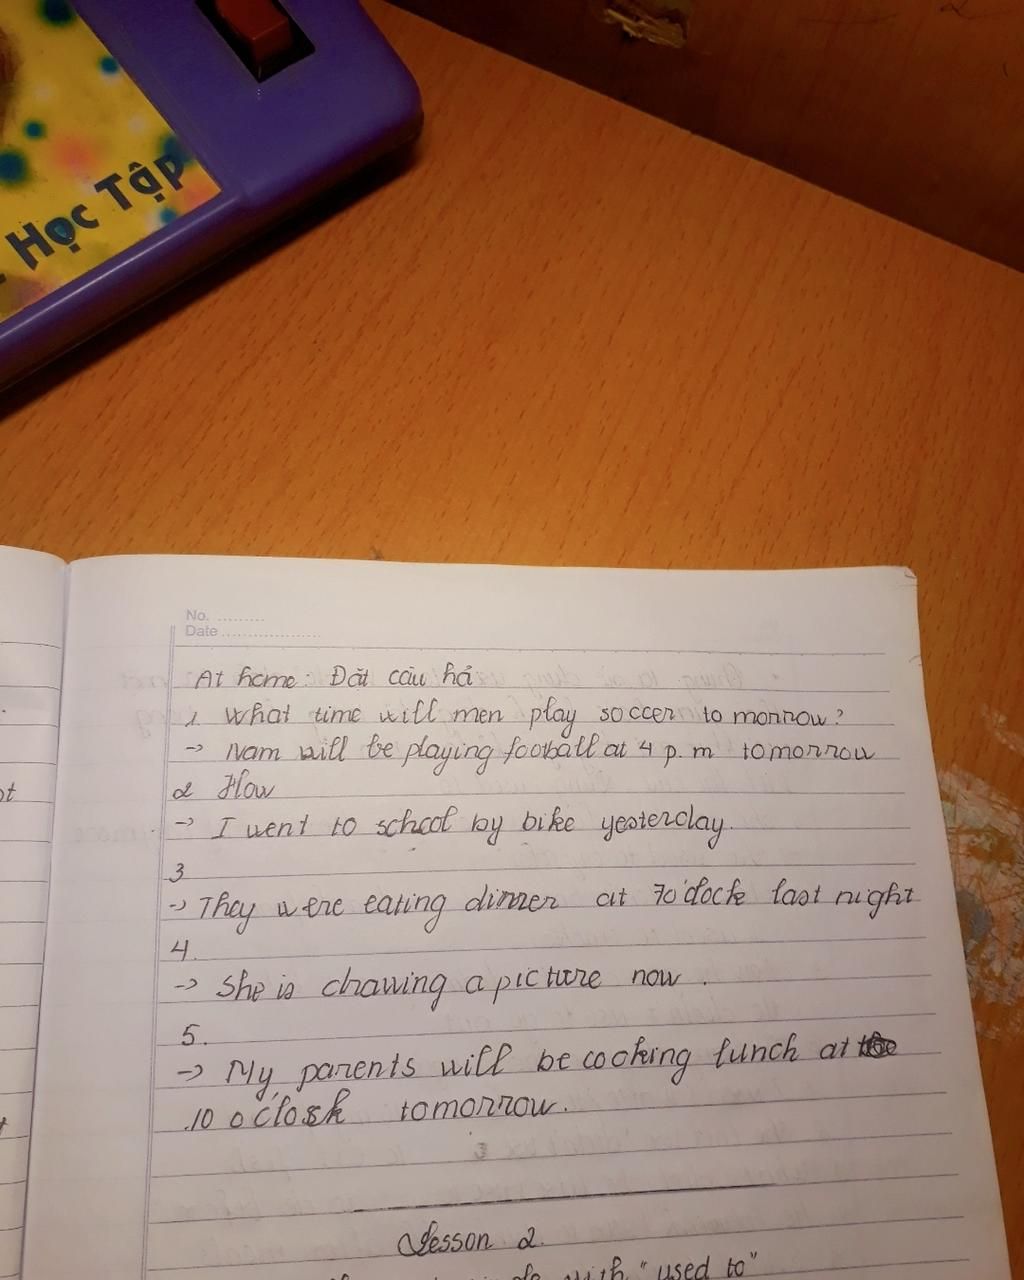 Học Tập
No. .........
Date ...................
At home: Đặt câu hỏ
1. What time will men play soccer to morrow?
-> Nam will be playing football at 4 p.m tomorrow
2 How
-> I went to school by bike yesterday.
3
-> They were eating dinner at 7o'clock last night
4.
-> She is drawing a picture now.
5.
-> My parents will be cooking lunch at
10 o'closk tomorrow.
Lesson 2.
with "used to"